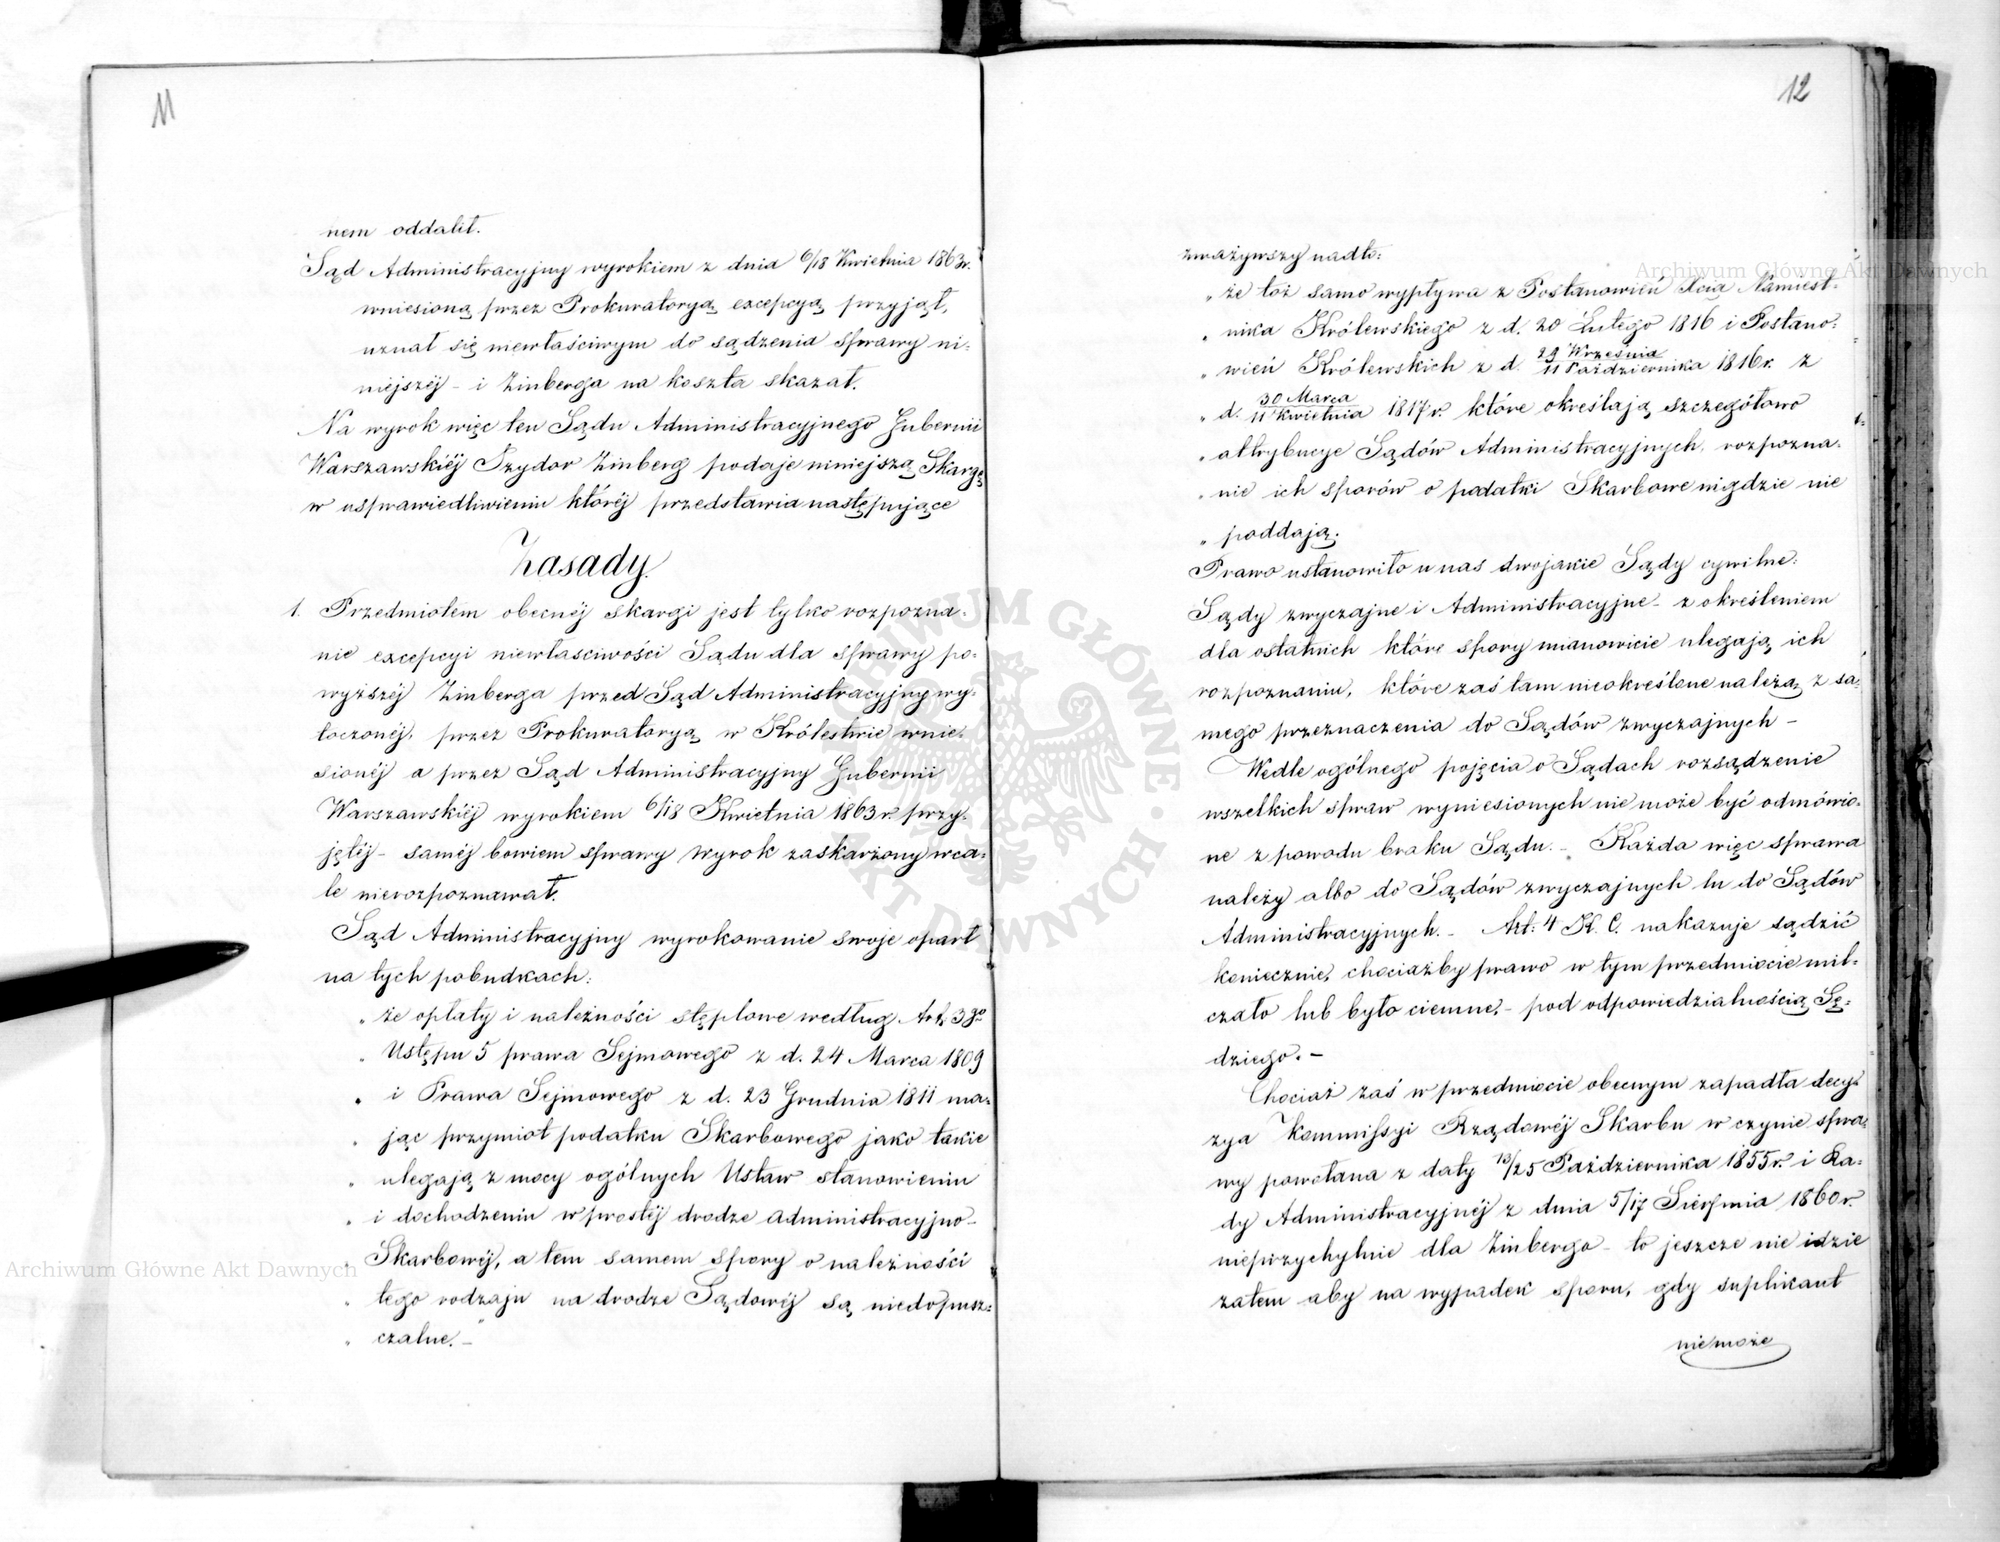 11
nem oddalił.
Sąd Administracyjny wyrokiem z dnia 6/18 Kwietnia 1863 r.
wniesioną przez Prokuratoryą excepcyą przyjął,
uznał się niewłaściwym do sądzenia sprawy ni-
niejszéj – i Zinberga na koszta skazał.
Na wyrok więc ten Sądu Administracyjnego Gubernii
Warszawskiéj Izydor Zinberg podaje niniejszą Skargę
w usprawiedliwieniu któréj przedstawia następujące
Zasady.
1. Przedmiotem obecnéj skargi jest tylko rozpozna-
nie excepcyi niewłaściwości Sądu dla sprawy po-
wyższéj Zinberga przed Sąd Administracyjny wy-
toczonéj, przez Prokuratoryą w Królestwie wnie-
sionéj a przez Sąd Administracyjny Gubernii
Warszawskiéj wyrokiem 6/18 Kwietnia 1863 r. przy-
jętéj – saméj bowiem sprawy wyrok zaskarżony wca-
le nierozpoznawał.
Sąd Administracyjny wyrokowanie swoje oparł
na tych pobudkach:
„ że opłaty i należności stęplowe według Art. 3go
„ Ustępu 5 prawa Sejmowego z d. 24 Marca 1809
„ i Prawa Sejmowego z d. 23 Grudnia 1811 ma-
„ jąc przymiot podatku Skarbowego jako takie
„ ulegają z mocy ogólnych Ustaw stanowieniu
„ i dochodzeniu w prostéj drodze administracyjno-
„ Skarbowéj, a tem samem spory o należności
„ tego rodzaju na drodze Sądowéj są niedopusz-
„ czalne. –"
12
zważywszy nadto:
„ że toż samo wypływa z Postanowień Xcia Namiest-
„ nika Królewskiego z d. 20 Lutego 1816 i Postano-
„ wień Królewskich z d. 29 Września/11 Października 1816 r. z
„ d. 30 Marca/11 Kwietnia 1817 r. które określają szczegółowo
„ attrybucye Sądów Administracyjnych, rozpozna-
„ nie ich sporów o podatki Skarbowe nigdzie nie
„ poddają.
Prawo ustanowiło u nas dwojakie Sądy cywilne:
Sądy zwyczajne i Administracyjne – z określeniem
dla ostatnich które spory mianowicie ulegają ich
rozpoznaniu, które zaś tam nieokreślone należą z sa-
mego przeznaczenia do Sądów zwyczajnych –
Wedle ogólnego pojęcia o Sądach rozsądzenie
wszelkich spraw wyniesionych nie może być odmówio-
ne z powodu braku Sądu. – Każda więc sprawa
należy albo do Sądów zwyczajnych lu do Sądów
Administracyjnych. – Art: 4 K. C. nakazuje sądzić
koniecznie, chociażby prawo w tym przedmiocie mil-
czało lub było ciemne, – pod odpowiedzialnością Sę-
dziego. –
Chociaż zaś w przedmiocie obecnym zapadła decy-
zya Kommissyi Rządowéj Skarbu w czynie spra-
wy powołana z daty 13/25 Października 1855 r. i Ra-
dy Administracyjnéj z dnia 5/17 Sierpnia 1860 r.
nieprzychylnie dla Zinberga – to jeszcze nie idzie
zatem aby na wypadek sporu, gdy suplikant
niemoże
Archiwum Główne Akt Dawnych
Archiwum Główne Akt Dawnych
ARCHIWUM GŁÓWNE AKT DAWNYCH